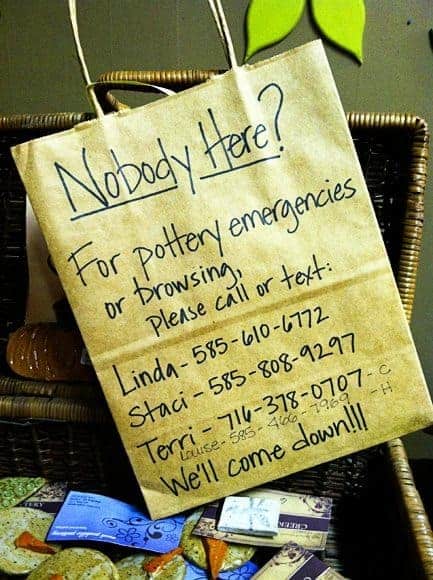 Nobody Here?
For pottery emergencies
or browsing,
please call or text:
Linda - 585-610-6772
Staci - 585-808-9297
Terri - 716-378-0707 - C
Louise - 585-466-7969 - H
We'll come down!!!
mud puddle pottery
CREEK